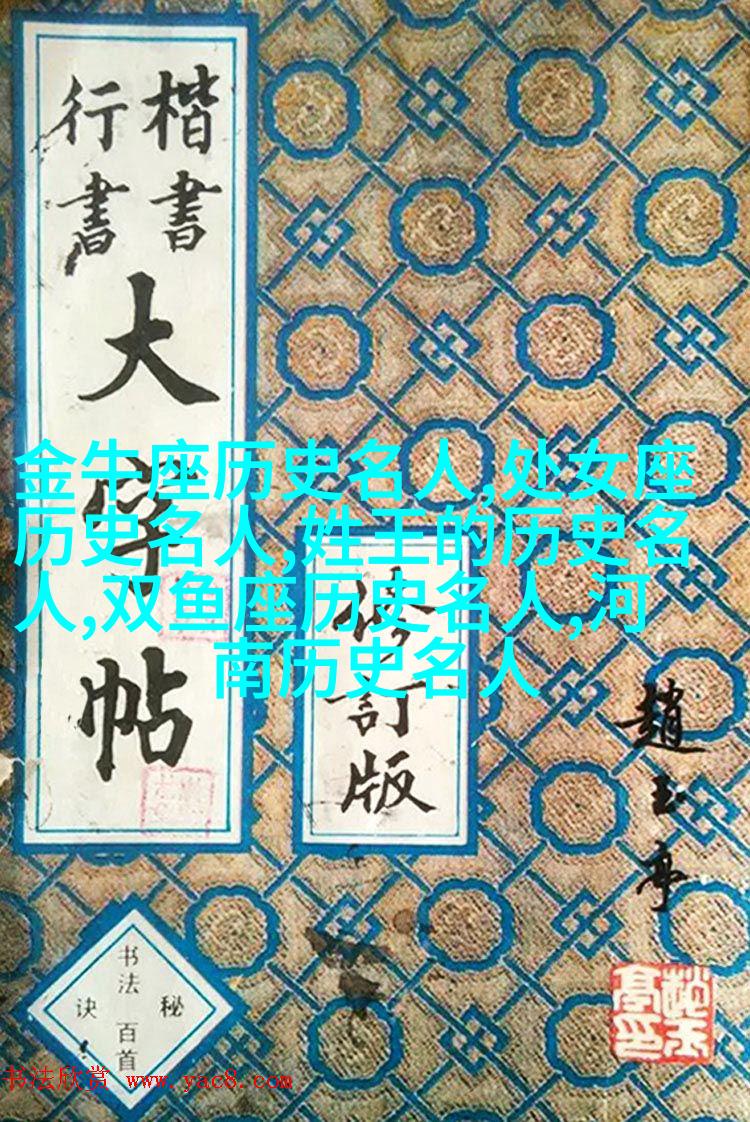 楷書
行書
大字帖
金牛座历史名人,处女座
历史名人,姓王的历史名
人,双鱼座历史名人,河
南历史名人
修訂版
趙玉亭
书法百首
秘诀
书法欣赏 www.yac8.com